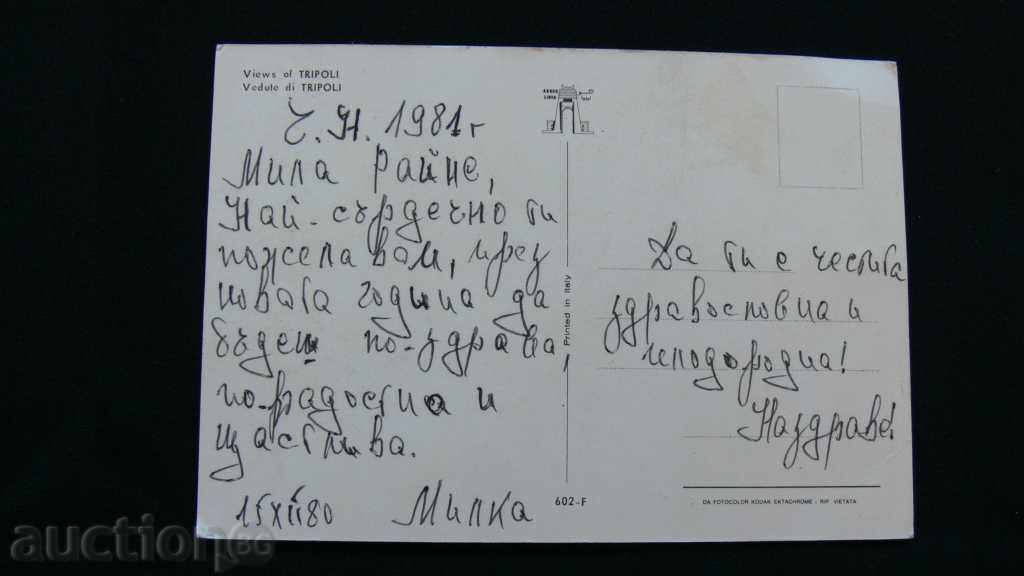 Views of TRIPOLI
Vedute di TRIPOLI
Ч.Н. 1981 г
Мила Райне,
Най-сърдечно ти
пожелавам, през
новата година да
бъдеш по-здрава,
по-радостна и
щастлива.
15 XII 80 Милка
602-F
Printed in Italy
Да ти е честита
здравословна и
плодородна!
Наздраве!
DA FOTOCOLOR KODAK EKTACHROME - RIP. VIETATA
auction